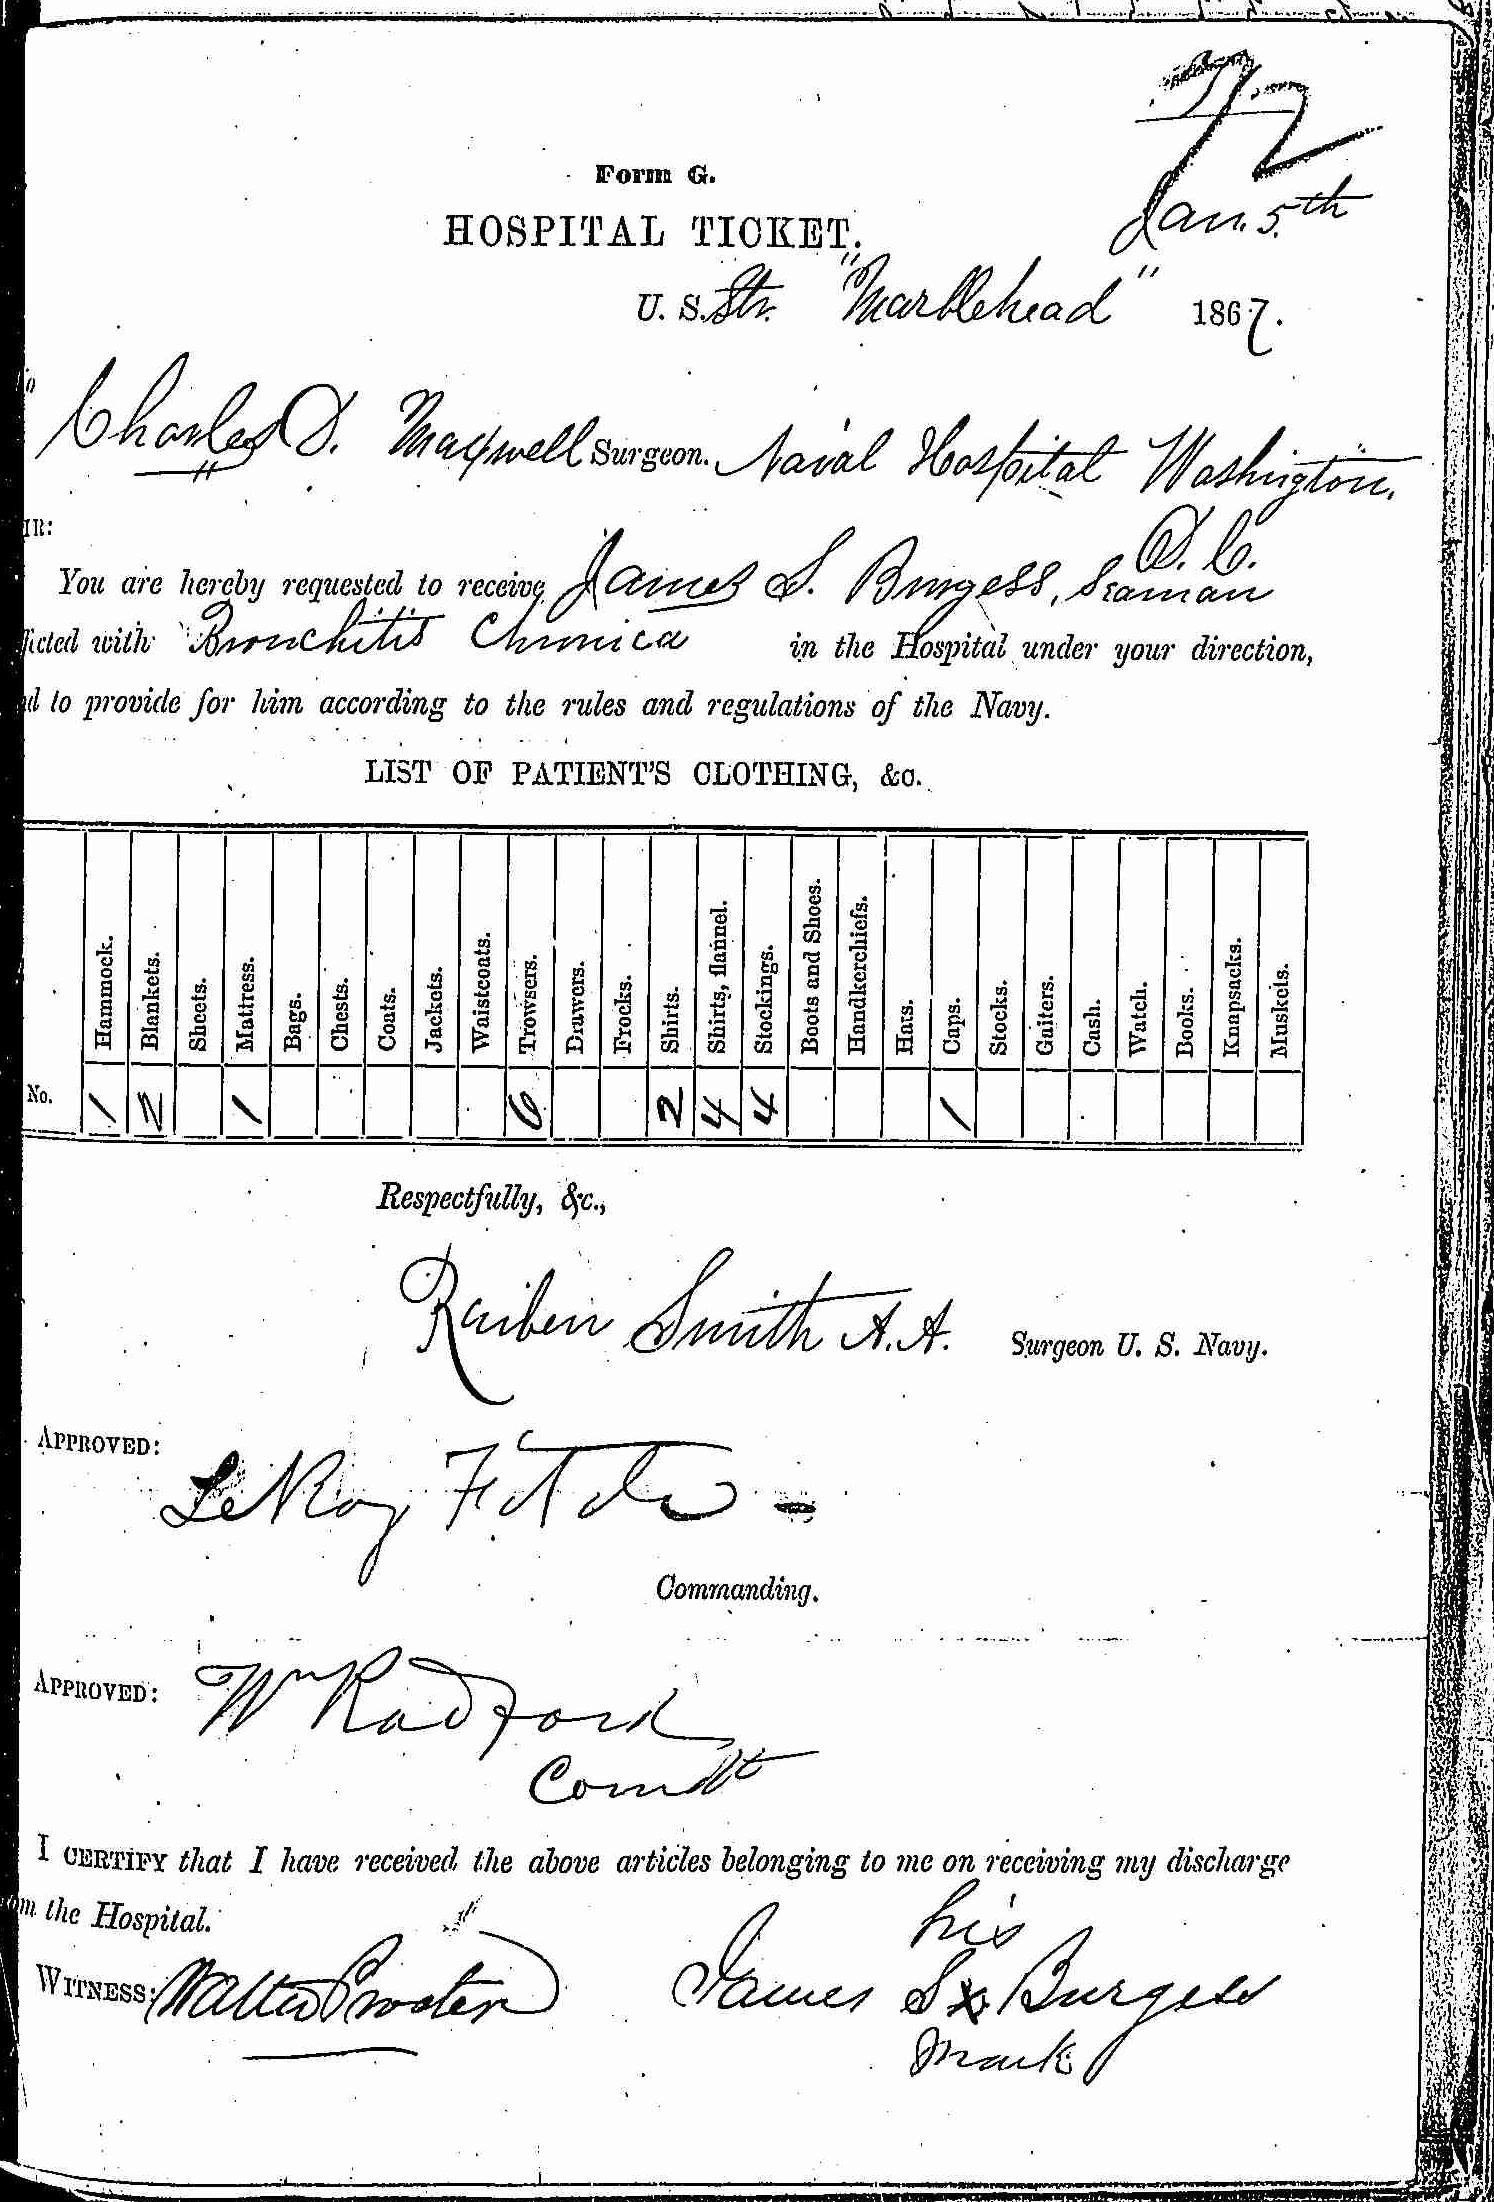 72
Form G.
HOSPITAL TICKET.
Jan. 5th
U. S. Str. "Marblehead" 1867.
Charles D. Maxwell Surgeon. Naval Hospital Washington,
D. C.
IR:
You are hereby requested to receive James S. Burgess, Seaman
icted with Bronchitis Chronica in the Hospital under your direction,
d to provide for him according to the rules and regulations of the Navy.
LIST OF PATIENT'S CLOTHING, &c.
Hammock. Blankets. Sheets. Mattress. Bags. Chests. Coats. Jackets. Waistcoats. Trowsers. Drawers. Frocks. Shirts. Shirts, flannel. Stockings. Boots and Shoes. Handkerchiefs. Hats. Caps. Stocks. Gaiters. Cash. Watch. Books. Knapsacks. Muskets.
No. 1 2 1 6 2 4 4 1
Respectfully, &c.,
Reuben Smith A. A. Surgeon U. S. Navy.
APPROVED:
LeRoy Fitch
Commanding.
APPROVED: Wm Radford
Comdt
I CERTIFY that I have received the above articles belonging to me on receiving my discharge
om the Hospital.
his
WITNESS: Walter James S x Burgess
mark